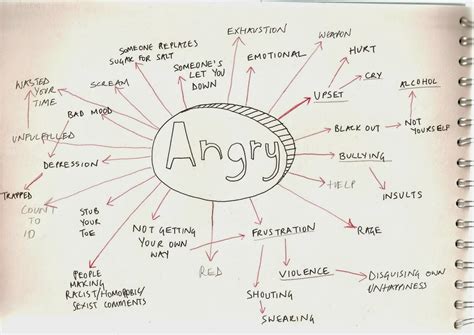 EXHAUSTION
WEAPON
SOMEONE REPLAZES
SUGAR FOR SALT
SOMEONE'S
LET YOU
DOWN
EMOTIONAL
HURT
WASTED
YOUR
TIME
SCREAM
CRY
ALCOHOL
UPSET
BAD MOOD
UNFULFILLED
Angry
BLACK OUT
NOT
YOURSELF
DEPRESSION
BULLYING
HELP
INSULTS
TRAPPED
COUNT
TO
10
STUB
YOUR
TOE
NOT GETTING
YOUR OWN
WAY
FRUSTRATION
RAGE
RED
PEOPLE
MAKING
RACIST/HOMOPHOBIC/
SEXIST COMMENTS
VIOLENCE
DISGUISING OWN
UNHAPINESS
SHOUTING
SWEARING